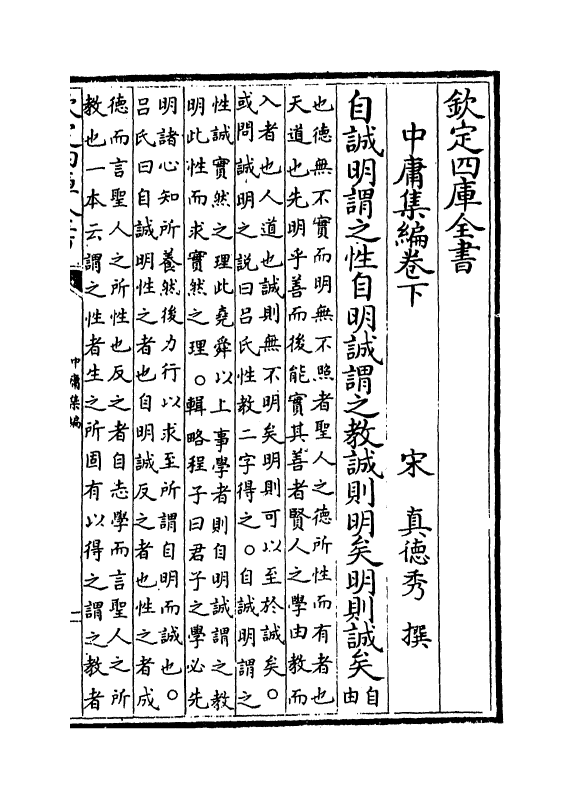 欽定四庫全書
中庸集編卷下 宋 真德秀 撰
自誠明謂之性自明誠謂之教誠則明矣明則誠矣自由
也德無不實而明無不照者聖人之德所性而有者也
天道也先明乎善而後能實其善者賢人之學由教而
入者也人道也誠則無不明矣明則可以至於誠矣○
或問誠明之說曰呂氏性教二字得之○自誠明謂之
性誠實然之理此堯舜以上事學者則自明誠謂之教
明此性而求實然之理○輯略程子曰君子之學必先
明諸心知所養然後力行以求至所謂自明而誠也○
呂氏曰自誠明性之者也自明誠反之者也性之者成
德而言聖人之所性也反之者自志學而言聖人之所
教也一本云謂之性者生之所固有以得之謂之教者
中庸集編